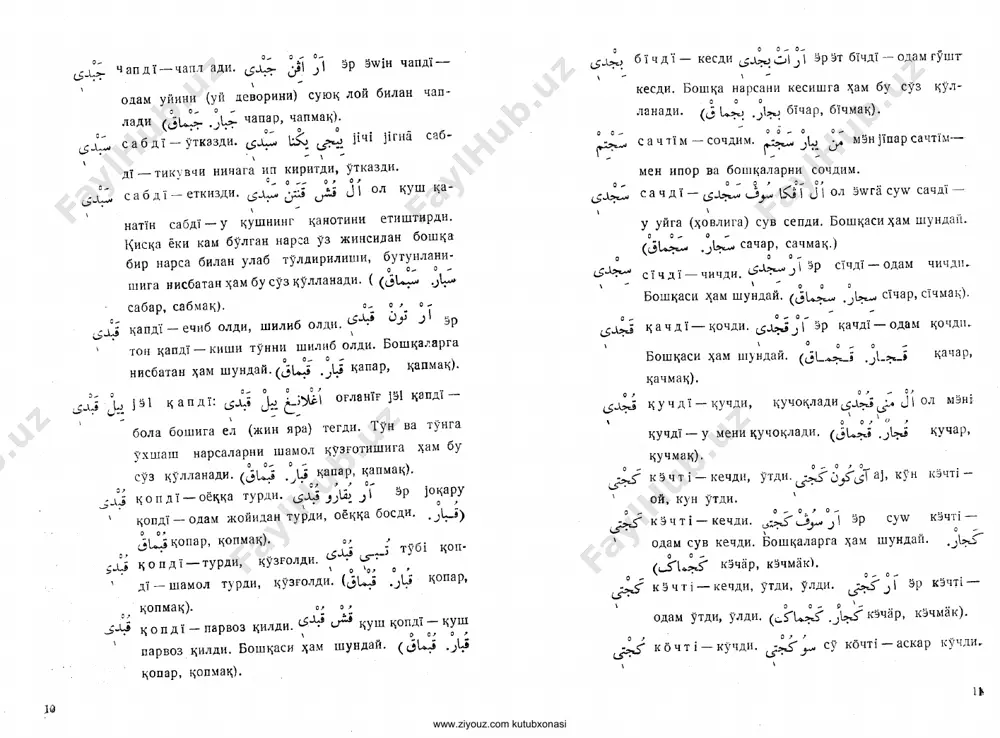 جَبْدى чапдī — чапл ади. اَرْ اَڤِنْ جَبْدى эр эwін чапдī —
одам уйини (уй деворини) суюқ лой билан чап-
лади (جَبار. جَبماقْ чапар, чапмақ).
سَبْدى сабдī — ўтказди. يِيجى يِكْنا سَبْدى јічі јігнā саб-
дī — тикувчи нинага ип киритди, ўтказди.
سَبْدى сабдī — етказди. اُلْ قُشْ قَنَتِنْ سَبْدى ол қуш қа-
натīн сабдī — у қушнинг қанотини етиштирди.
Қисқа ёки кам бўлган нарса ўз жинсидан бошқа
бир нарса билан улаб тўлдирилиши, бутунлани-
шига нисбатан ҳам бу сўз қўлланади. (سَبار. سَبْماقْ
сабар, сабмақ).
قَبْدى қапдī — ечиб олди, шилиб олди. اَرْ تُونْ قَبْدى эр
тон қапдī — киши тўнни шилиб олди. Бошқаларга
нисбатан ҳам шундай. (قَبار. قَبْماقْ қапар, қапмақ).
ييلْ قَبْدى јэл қапдī: اُغْلانِغْ ييلْ قَبْدى оғланīғ јэл қапдī —
бола бошига ел (жин яра) тегди. Тўн ва тўнга
ўхшаш нарсаларни шамол қўзғотишига ҳам бу
сўз қўлланади. (قَبار. قَبْماقْ қапар, қапмақ).
قُبْدى қопдī — оёққа турди. اَرْ يُقارو قُبْدى эр јоқару
қопдī — одам жойидан турди, оёққа босди. (قُبار.
قُبْماقْ қопар, қопмақ).
قُبْدى қопдī — турди, қўзғолди. تُبى قُبْدى тўбі қоп-
дī — шамол турди, қўзғолди. (قُبار. قُبْماقْ қопар,
қопмақ).
قُبْدى қопдī — парвоз қилди. قُشْ قُبْدى қуш қопдī — қуш
парвоз қилди. Бошқаси ҳам шундай. (قُبار. قُبْماقْ
қопар, қопмақ).
10
بِجْدى бīчдī — кесди اَرْ اَتْ بِجْدى эр эт бīчдī — одам гўшт
кесди. Бошқа нарсани кесишга ҳам бу сўз қўл-
ланади. (بِجار. بِجْماقْ бīчар, бīчмақ).
سَجْتِمْ сачтīм — сочдим. مَنْ يِبارْ سَجْتِمْ мэн јīпар сачтīм —
мен ипор ва бошқаларни сочдим.
سَجْدى сачдī — اُلْ اَڤْكا سُوڤْ سَجْدى ол эwгā суw сачдī —
у уйга (ҳовлига) сув сепди. Бошқаси ҳам шундай.
(سَجار. سَجْماقْ сачар, сачмақ.)
سِجْدى сīчдī — чичди. اَرْ سِجْدى эр сīчдī — одам чичди.
Бошқаси ҳам шундай. (سِجار. سِجْماقْ сīчар, сīчмақ).
قَجْدى қачдī — қочди. اَرْ قَجْدى эр қачдī — одам қочди.
Бошқаси ҳам шундай. (قَجار. قَجْماقْ қачар,
қачмақ).
قُجْدى қучдī — қучди, қучоқлади اُلْ مَنى قُجْدى ол мэні
қучдī — у мени қучоқлади. (قُجار. قُجْماقْ қучар,
қучмақ).
كَجْتى кэчті — кечди, ўтди. اَىْ كُونْ كَجْتى ај, кўн кэчті —
ой, кун ўтди.
كَجْتى кэчті — кечди. اَرْ سُوڤْ كَجْتى эр суw кэчті —
одам сув кечди. Бошқаларга ҳам шундай. كَجار.
(كَجْماكْ кэчāр, кэчмāк).
كَجْتى кэчті — кечди, ўтди, ўлди. اَرْ كَجْتى эр кэчті —
одам ўтди, ўлди. (كَجار. كَجْماكْ кэчāр, кэчмāк).
كُجْتى кőчті — кўчди. سُو كُجْتى сӱ кőчті — аскар кўчди.
11
www.ziyouz.com kutubxonasi
FaylHub.uz
FaylHub.uz
FaylHub.uz
FaylHub.uz
FaylHub.uz